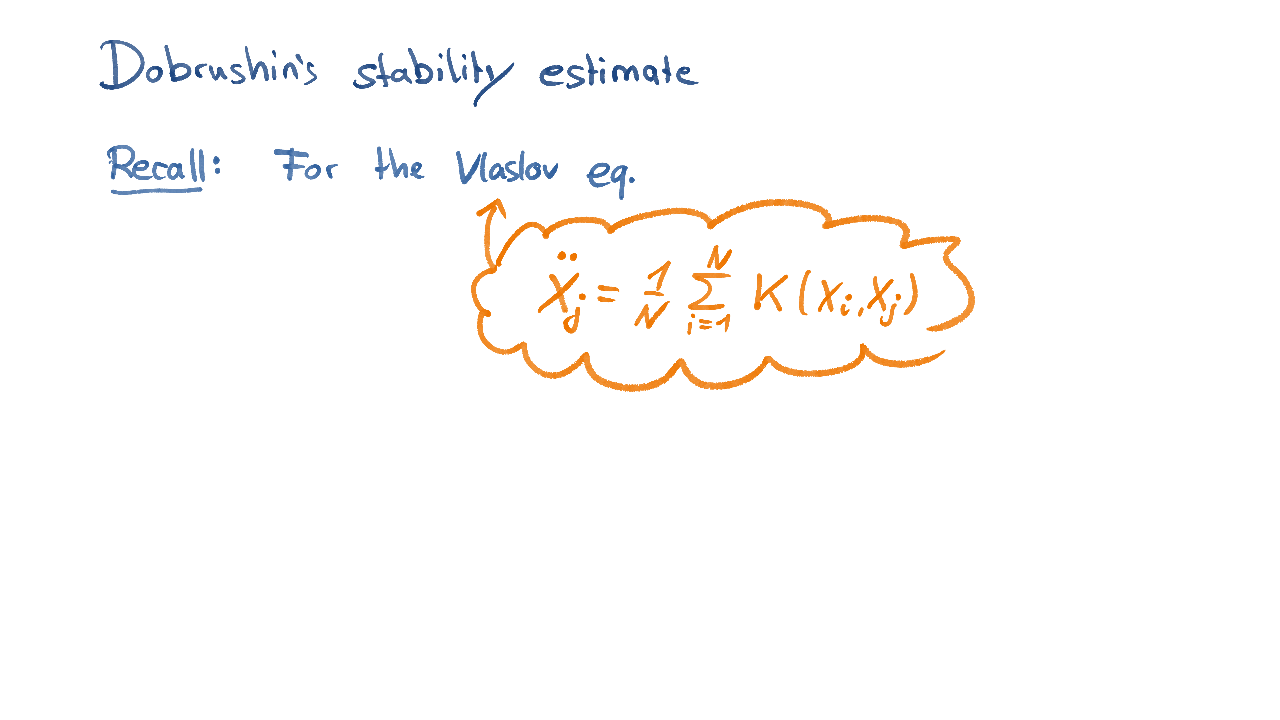 Dobrushin's stability estimate
Recall: For the Vlaslov eq.
Ẍ_j = 1/N ∑_{i=1}^{N} K(x_i, x_j)